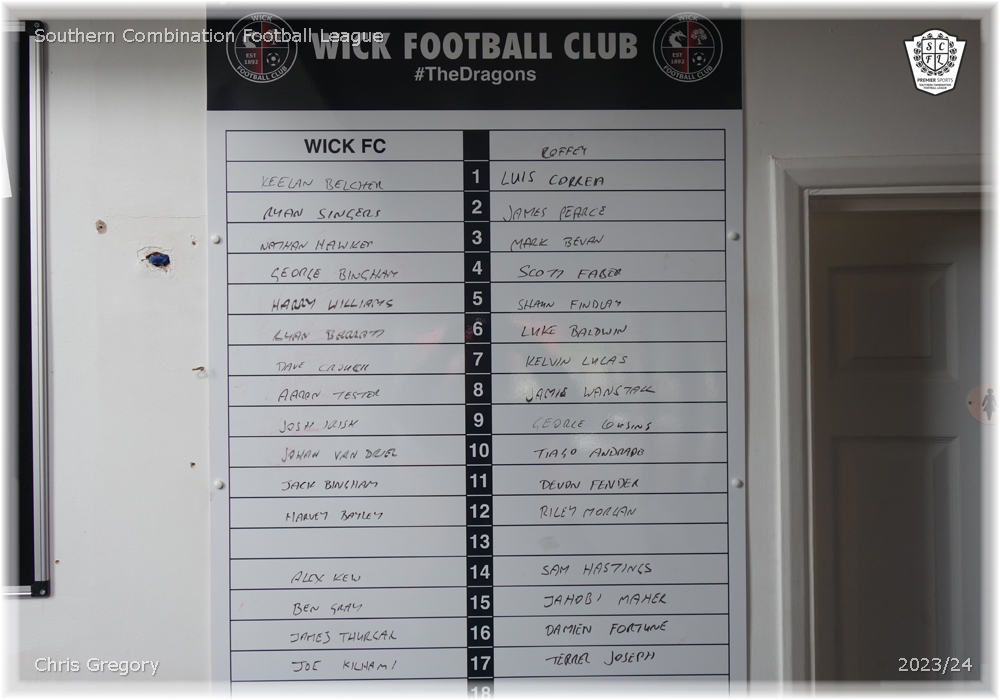 Southern Combination Football League
WICK FOOTBALL CLUB
#TheDragons
WICK EST 1892 FOOTBALL CLUB
WICK EST 1892 FOOTBALL CLUB
S C F L
PREMIER SPORTS
SOUTHERN COMBINATION
FOOTBALL LEAGUE
WICK FC ROFFEY
KEELAN BELCHER 1 LUIS CORREA
RYAN SINGERS 2 JAMES PEARCE
NATHAN HAWKER 3 MARK BEVAN
GEORGE BINGHAM 4 SCOTT FABER
HARRY WILLIAMS 5 SHAUN FINDLAY
RYAN BARRATT 6 LUKE BALDWIN
DAVE CROUCH 7 KELVIN LUCAS
AARON TESTER 8 JAMIE WANSTALL
JOSH IRISH 9 GEORGE COUSINS
JOHAN VAN DRIEL 10 TIAGO ANDRADE
JACK BINGHAM 11 DEVON FENDER
HARVEY BAYLEY 12 RILEY MORGAN
13
ALEX KEW 14 SAM HASTINGS
BEN GRAY 15 JAHOBI MAHER
JAMES THURGAR 16 DAMIEN FORTUNE
JOE KILHAMS 17 TERREL JOSEPH
18
Chris Gregory 2023/24